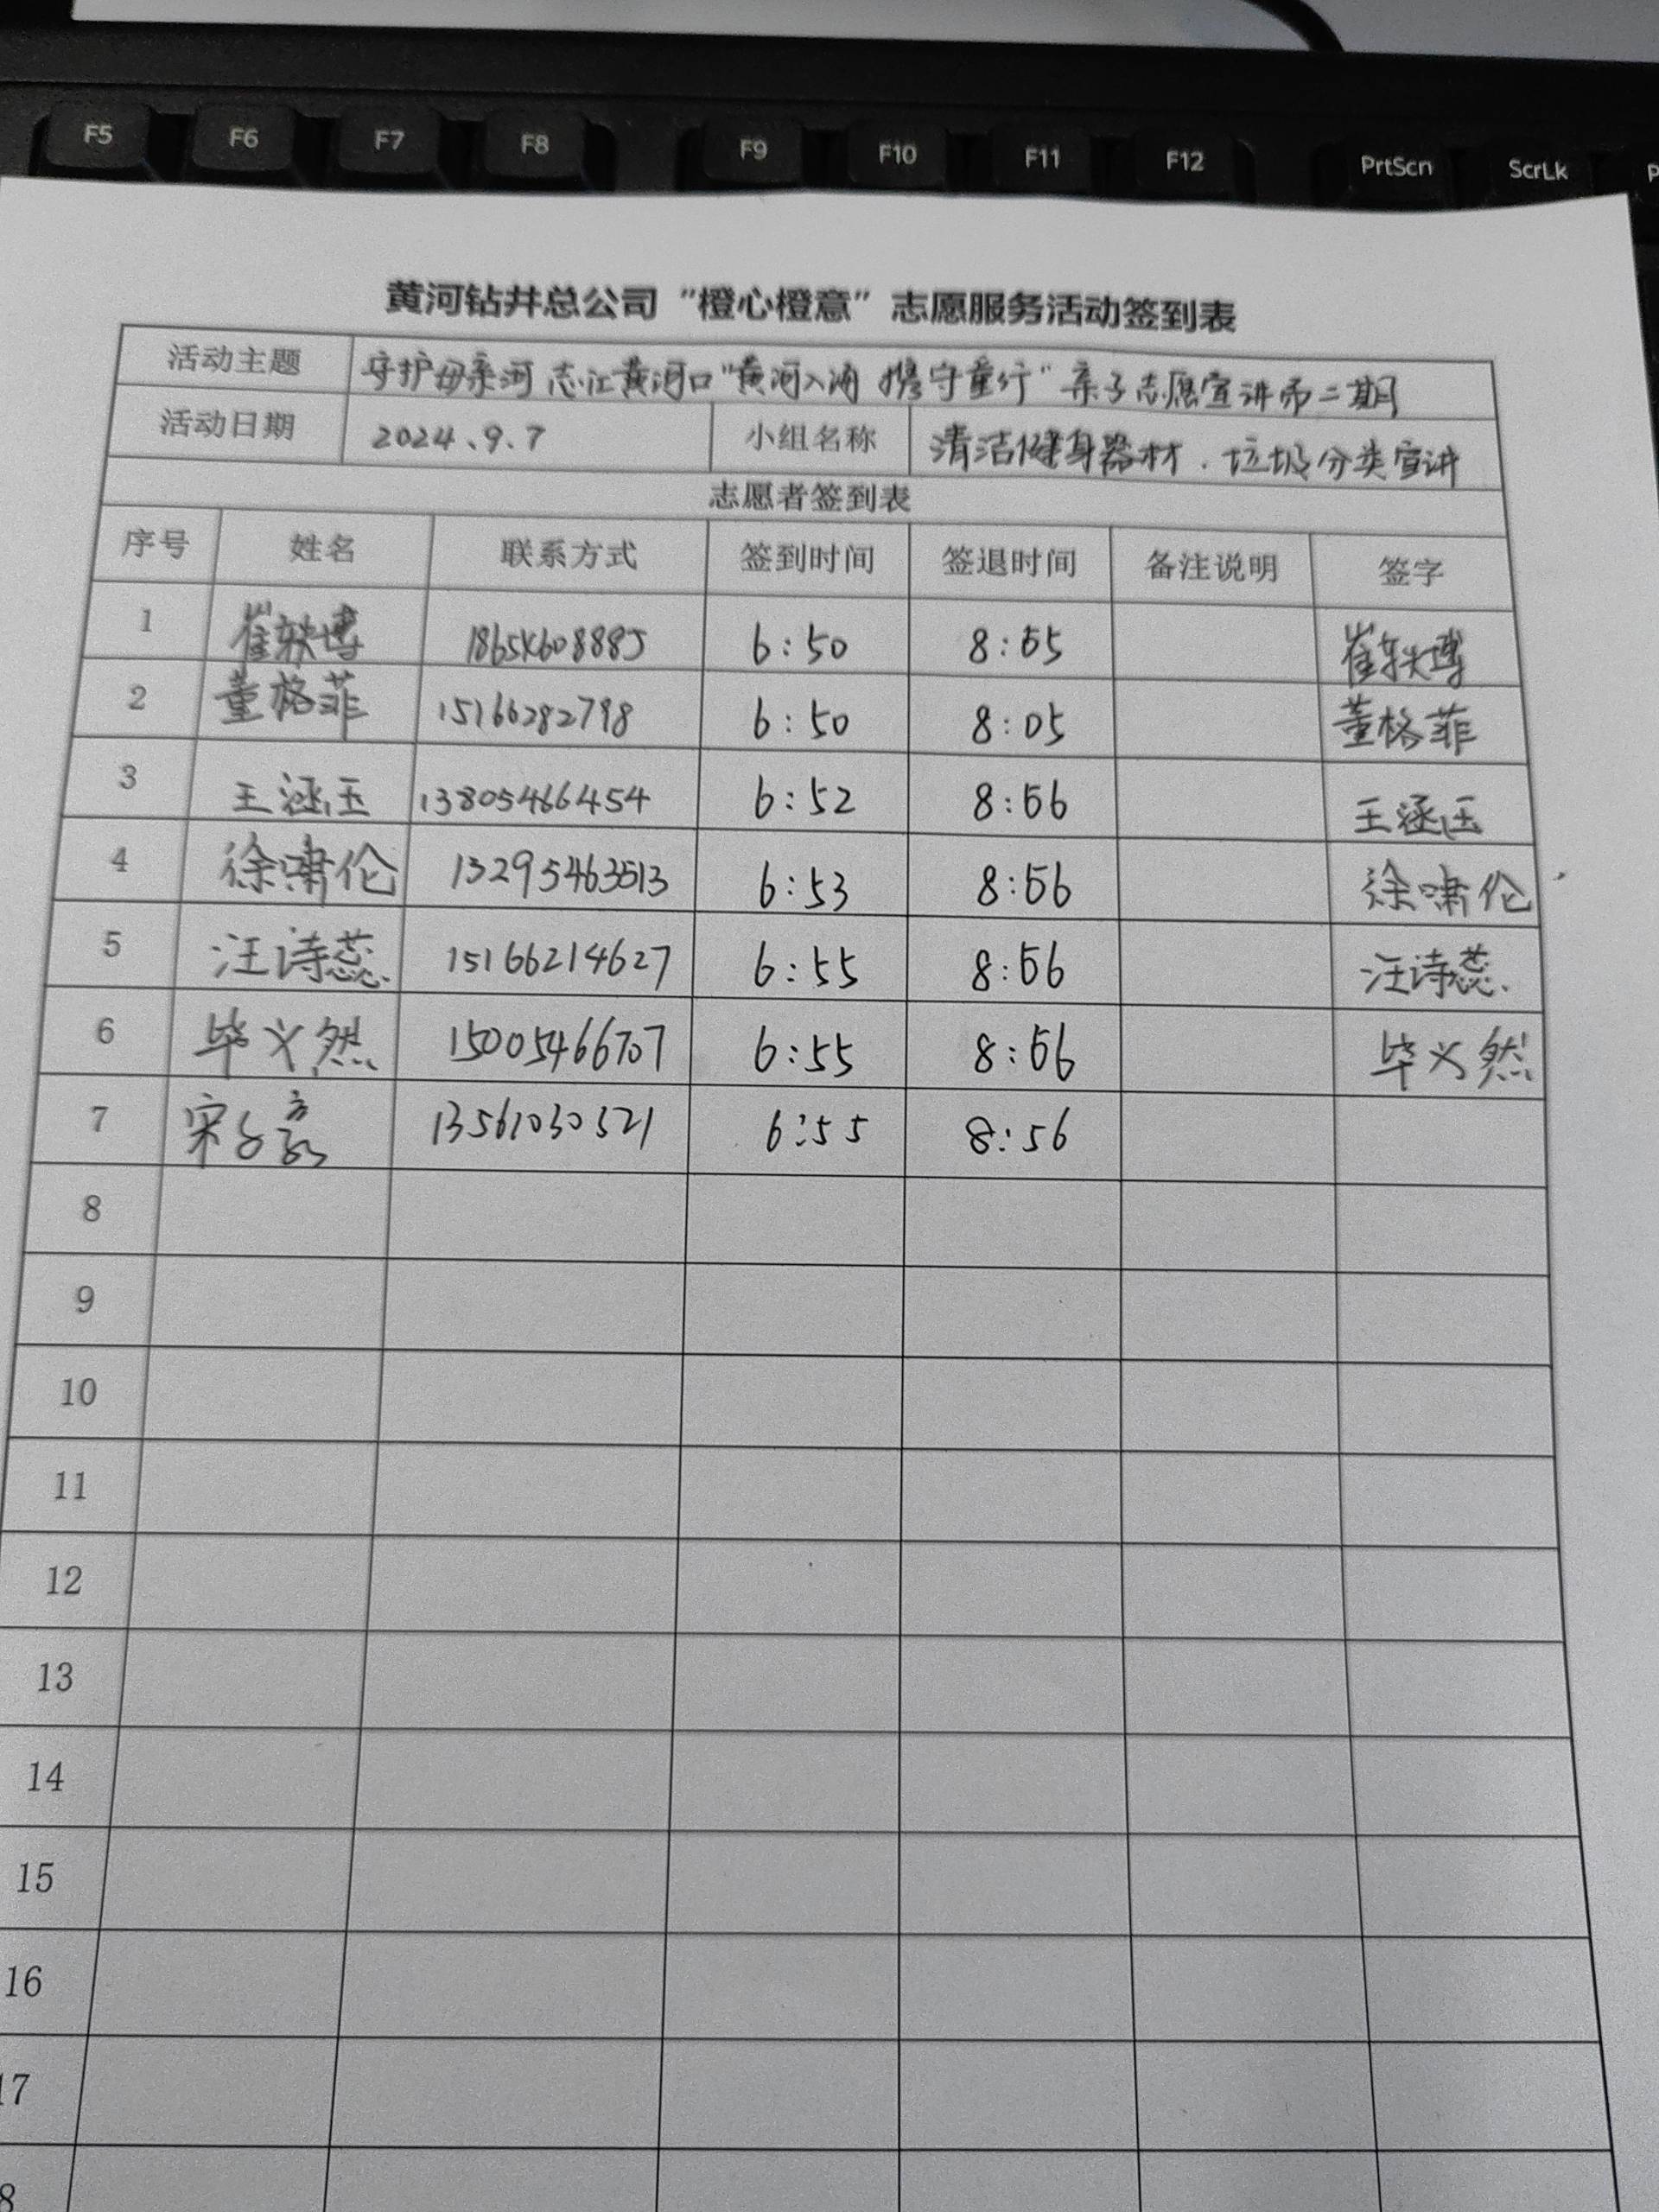 F5 F6 F7 F8 F9 F10 F11 F12 PrtScn ScrLk P
黄河钻井总公司“橙心橙意”志愿服务活动签到表
活动主题 守护母亲河 志江黄河口“黄河入海 携守童行”亲子志愿宣讲第二期
活动日期 2024.9.7 小组名称 清洁健身器材.垃圾分类宣讲
志愿者签到表
序号 姓名 联系方式 签到时间 签退时间 备注说明 签字
1 崔轶博 6:50 8:55 崔轶博
2 董格菲 15166282798 6:50 8:05 董格菲
3 王涵玉 13805466454 6:52 8:56 王涵玉
4 徐啸伦 13295463513 6:53 8:56 徐啸伦
5 汪诗蕊 15166214627 6:55 8:56 汪诗蕊
6 毕义然 15005466707 6:55 8:56 毕义然
7 13561030321 6:55 8:56
8
9
10
11
12
13
14
15
16
17
8